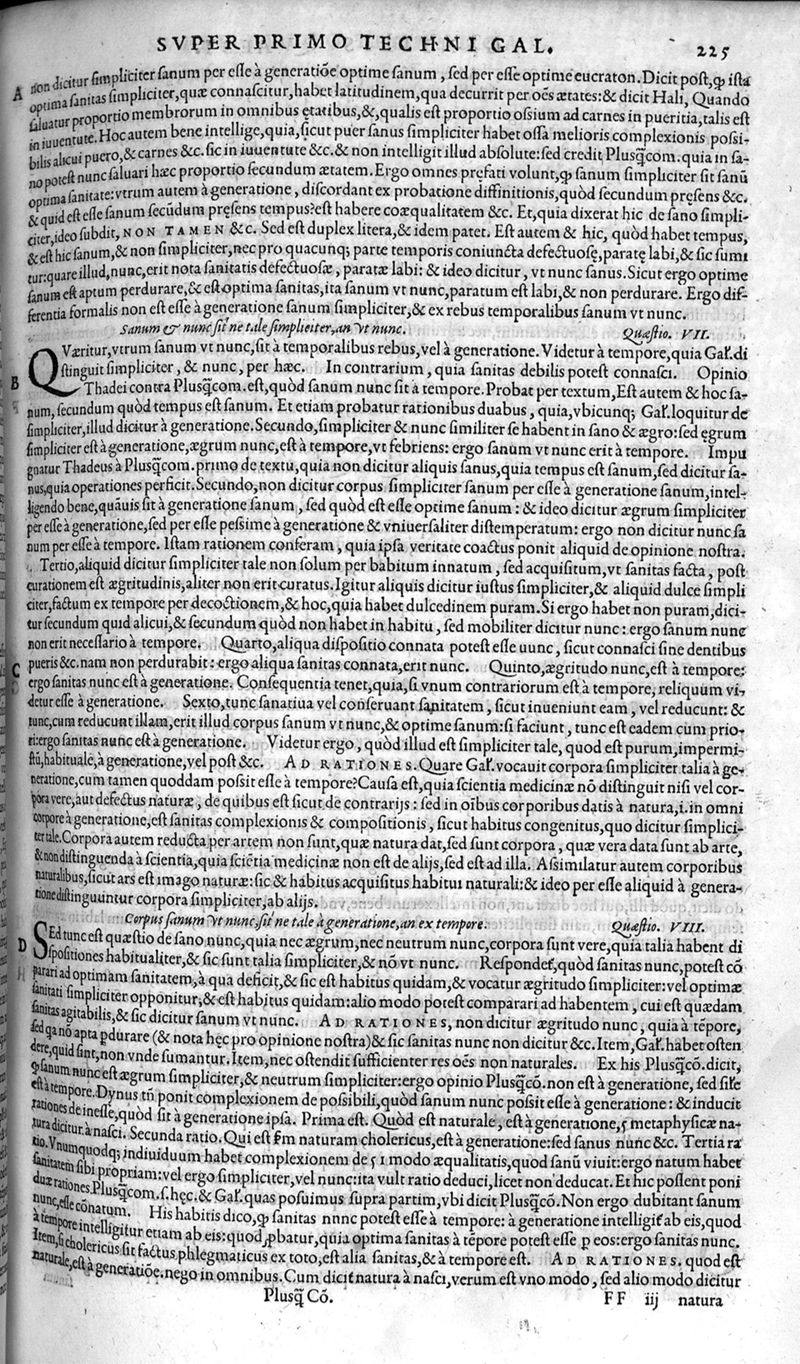 SVPER PRIMO TECHNI GAL. 225
non dicitur simpliciter sanum per esse à generatiõe optime sanum, sed per esse optime eucraton. Dicit post, ꝙ ista
A optima sanitas simpliciter, quæ connascitur, habet latitudinem, qua decurrit per oẽs ætates: & dicit Hali, Quando
saluatur proportio membrorum in omnibus ętatibus, &, qualis est proportio ossium ad carnes in pueritia, talis est
in iuuentute. Hoc autem bene intellige, quia, sicut puer sanus simpliciter habet ossa melioris complexionis possi-
bilis alicui puero, & carnes &c. sic in iuuentute &c. & non intelligit illud absolute: sed credit Plusq̃com. quia in sa-
no potest nunc saluari hæc proportio secundum ætatem. Ergo omnes pręfati volunt, ꝙ sanum simpliciter sit sanũ
optima sanitate: vtrum autem à generatione, discordant ex probatione diffinitionis, quòd secundum pręsens &c.
& quid est esse sanum secũdum pręsens tempus? est habere coæqualitatem &c. Et, quia dixerat hic de sano simpli-
citer, ideo subdit, NON TAMEN &c. Sed est duplex litera, & idem patet. Est autem & hic, quòd habet tempus,
& est hic sanum, & non simpliciter, nec pro quacunq; parte temporis coniuncta defectuosę, paratę labi, & sic sumi
tur: quare illud, nunc, erit nota sanitatis defectuosæ, paratæ labi: & ideo dicitur, vt nunc sanus. Sicut ergo optime
sanum est aptum perdurare, & est optima sanitas, ita sanum vt nunc, paratum est labi, & non perdurare. Ergo dif-
ferentia formalis non est esse à generatione sanum simpliciter, & ex rebus temporalibus sanum vt nunc.
Sanum & nunc sit ne tale simpliciter, an vt nunc. Quæstio. VII.
QVæritur, vtrum sanum vt nunc, sit à temporalibus rebus, vel à generatione. Videtur à tempore, quia Gal. di
B stinguit simpliciter, & nunc, per hæc. In contrarium, quia sanitas debilis potest connasci. Opinio
Thadei contra Plusq̃com. est, quòd sanum nunc sit à tempore. Probat per textum, Est autem & hoc sa-
num, secundum quòd tempus est sanum. Et etiam probatur rationibus duabus, quia, vbicunq; Gal. loquitur de
simpliciter, illud dicitur à generatione. Secundo, simpliciter & nunc similiter se habent in sano & ægro: sed ęgrum
simpliciter est à generatione, ægrum nunc, est à tempore, vt febriens: ergo sanum vt nunc erit à tempore. Impu
gnatur Thadeus à Plusq̃com. primo de textu, quia non dicitur aliquis sanus, quia tempus est sanum, sed dicitur sa-
nus, quia operationes perficit. Secundo, non dicitur corpus simpliciter sanum per esse à generatione sanum, intel-
ligendo bene, quãuis sit à generatione sanum, sed quòd est esse optime sanum: & ideo dicitur ægrum simpliciter
per esse à generatione, sed per esse pessime à generatione & vniuersaliter distemperatum: ergo non dicitur nunc sa
num per esse à tempore. Istam rationem conferam, quia ipsa veritate coactus ponit aliquid de opinione nostra.
Tertio, aliquid dicitur simpliciter tale non solum per habitum innatum, sed acquisitum, vt sanitas facta, post
curationem est ægritudinis, aliter non erit curatus. Igitur aliquis dicitur iustus simpliciter, & aliquid dulce simpli
citer, factum ex tempore per decoctionem, & hoc, quia habet dulcedinem puram. Si ergo habet non puram, dici-
tur secundum quid alicui, & secundum quòd non habet in habitu, sed mobiliter dicitur nunc: ergo sanum nunc
non erit necessario à tempore. Quarto, aliqua dispositio connata potest esse uunc, sicut connasci sine dentibus
C pueris &c. nam non perdurabit: ergo aliqua sanitas connata, erit nunc. Quinto, ægritudo nunc, est à tempore:
ergo sanitas nunc est à generatione. Consequentia tenet, quia, si vnum contrariorum est à tempore, reliquum vi-
detur esse à generatione. Sexto, tunc sanatiua vel conseruant sanitatem, sicut inueniunt eam, vel reducunt: &
tunc, cum reducunt illam, erit illud corpus sanum vt nunc, & optime sanum: si faciunt, tunc est eadem cum prio-
ri: ergo sanitas nunc est à generatione. Videtur ergo, quòd illud est simpliciter tale, quod est purum, impermi-
stũ, habituale, à generatione, vel post &c. AD RATIONES. Quare Gal. vocauit corpora simpliciter talia à ge-
neratione, cum tamen quoddam possit esse à tempore? Causa est, quia scientia medicinæ nõ distinguit nisi vel cor-
pora vere, aut defectus naturæ, de quibus est sicut de contrarijs: sed in oĩbus corporibus datis à natura, i. in omni
corpore à generatione, est sanitas complexionis & compositionis, sicut habitus congenitus, quo dicitur simplici-
ter tale. Corpora autem reducta per artem non sunt, quæ natura dat, sed sunt corpora, quæ vera data sunt ab arte,
& non distinguenda à scientia, quia sciẽtia medicinæ non est de alijs, sed est ad illa. Assimilatur autem corporibus
naturalibus, sicut ars est imago naturæ: sic & habitus acquisitus habitui naturali: & ideo per esse aliquid à genera-
tione distinguuntur corpora simpliciter, ab alijs.
Corpus sanum vt nunc, sit ne tale à generatione, an ex tempore. Quæstio. VIII.
D SEd tunc est quæstio de sano nunc, quia nec ægrum, nec neutrum nunc, corpora sunt vere, quia talia habent di
spositiones habitualiter, & sic sunt talia simpliciter, & nõ vt nunc. Respondet, quòd sanitas nunc, potest cõ
parari ad optimam sanitatem, à qua deficit, & sic est habitus quidam, & vocatur ægritudo simpliciter: vel optimæ
sanitati simpliciter opponitur, & est habitus quidam: alio modo potest comparari ad habentem, cui est quædam
sanitas agitabilis, & sic dicitur sanum vt nunc. AD RATIONES, non dicitur ægritudo nunc, quia à tẽpore,
sed qa nõ apta ꝑdurare (& nota hęc pro opinione nostra) & sic sanitas nunc non dicitur &c. Item, Gal. habet osten
dere, quid sint, non vnde sumantur. Item, nec ostendit sufficienter res oẽs non naturales. Ex his Plusq̃cõ. dicit,
ꝙ sanum nunc est ægrum simpliciter, & neutrum simpliciter: ergo opinio Plusq̃cõ. non est à generatione, sed sil̃e
est à tempore. Dynus tñ ponit complexionem de possibili, quòd sanum nunc possit esse à generatione: & inducit
rationes de inesse, quòd sit à generatione ipsa. Prima est. Quòd est naturale, est à generatione, metaphysicæ na-
tura dicitur à nasci. Secunda ratio. Qui est s̃m naturam cholericus, est à generatione: sed sanus nunc &c. Tertia ra
tio. Vnumquodq; indiuiduum habet complexionem de modo æqualitatis, quod sanũ viuit: ergo natum habet
sanitatem sibi propriam: vel ergo simpliciter, vel nunc: ita vult ratio deduci, licet non deducat. Et hic possent poni
duæ rationes Plusq̃com. s. hęc. & Gal. quas posuimus supra partim, vbi dicit Plusq̃cõ. Non ergo dubitant sanum
nunc, esse cõnatum. His habitis dico, ꝙ sanitas nnnc potest esse à tempore: à generatione intelligit ab eis, quod
à tempore intelligitur etiam ab eis: quod ꝓbatur, quia optima sanitas à tẽpore potest esse ꝑ eos: ergo sanitas nunc.
Item, si cholericus sit factus phlegmaticus ex toto, est alia sanitas, & à tempore est. AD RATIONES. quod est
naturale, est à generatiõe, nego in omnibus. Cum dicit natura à nasci, verum est vno modo, sed alio modo dicitur
Plusq̃ Cõ. FF iij natura